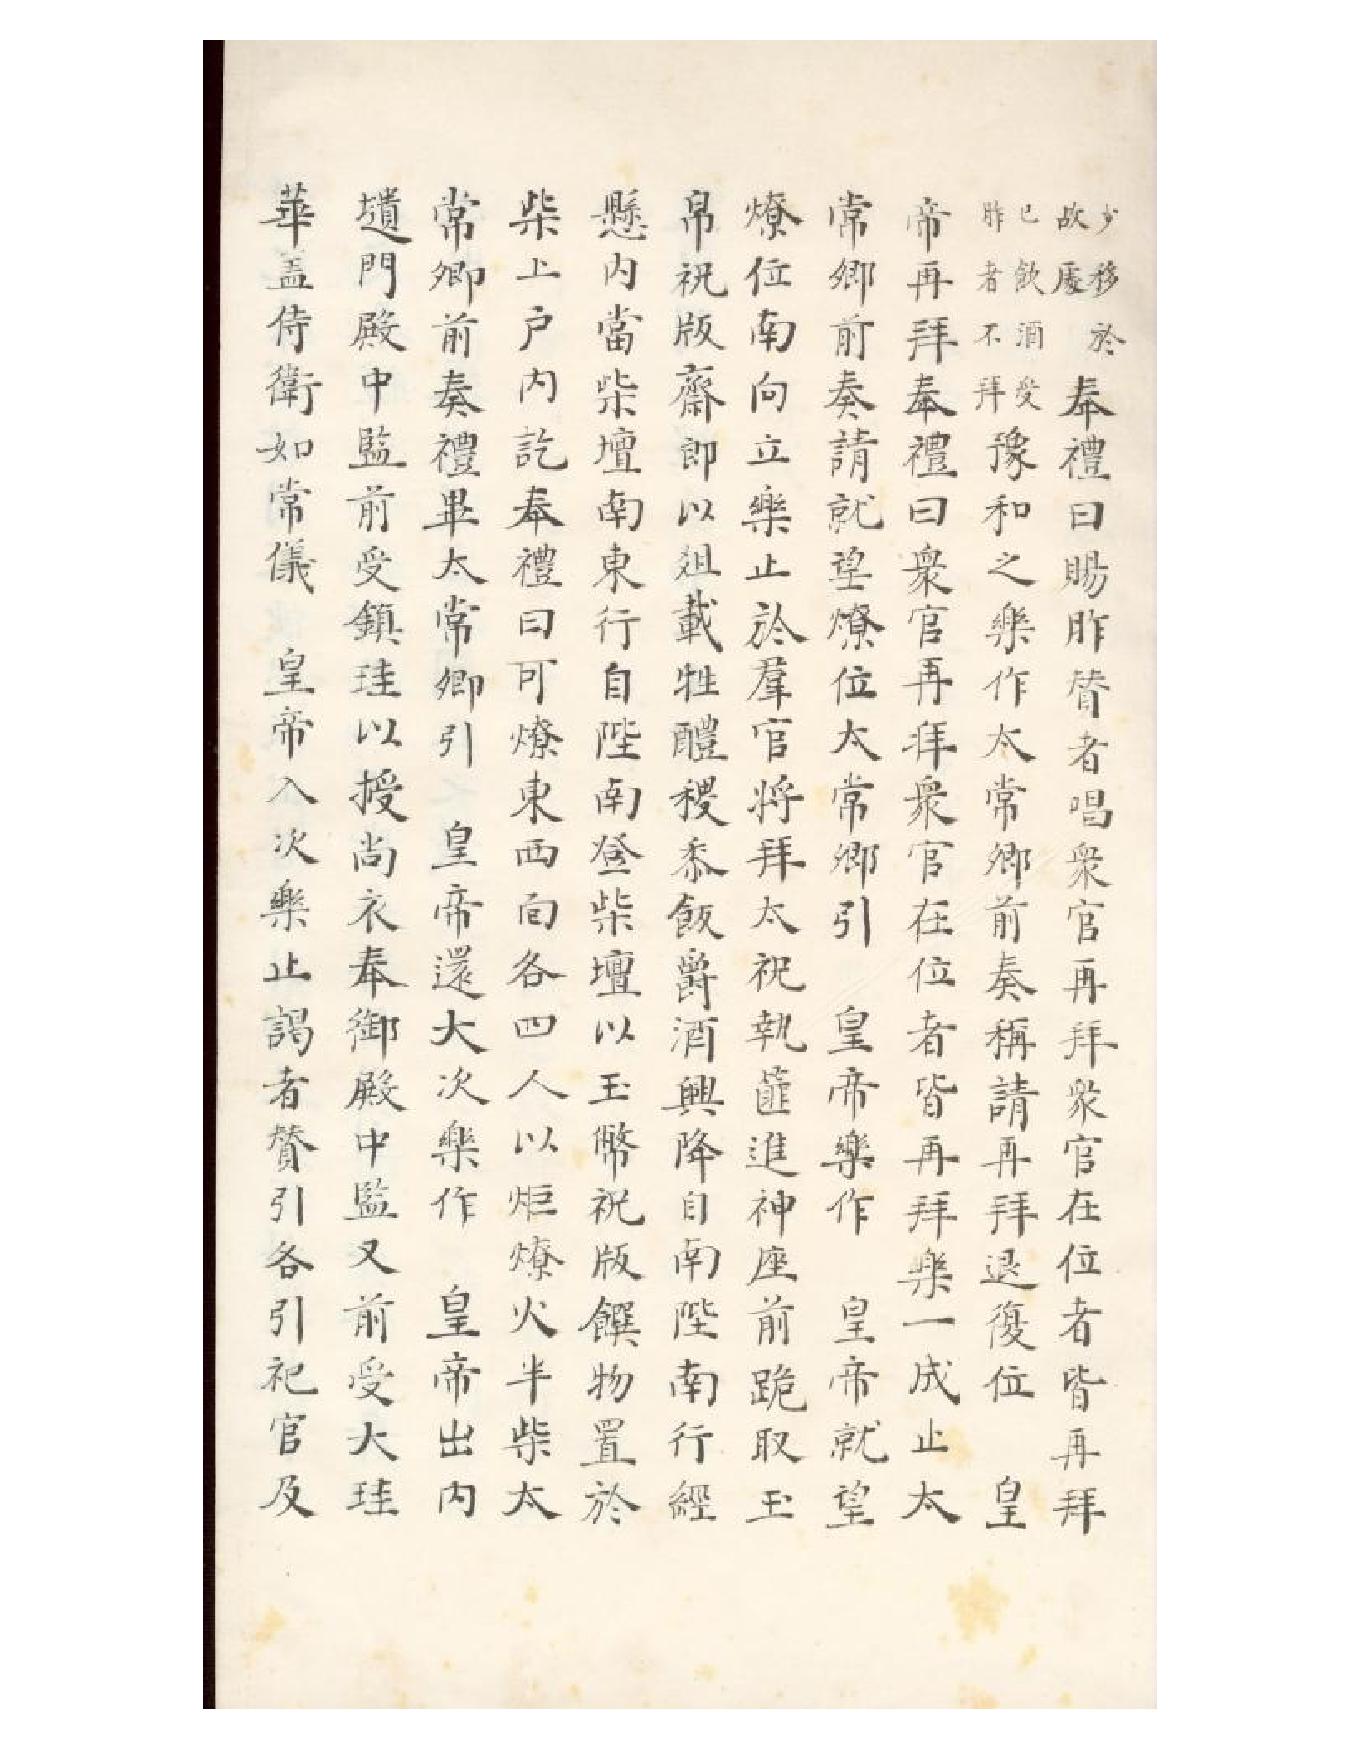 少移於故處奉禮曰賜胙賛者唱衆官再拜衆官在位者皆再拜
已飲酒受胙者不拜豫和之樂作太常卿前奏稱請再拜退復位　皇
帝再拜奉禮曰衆官再拜衆官在位者皆再拜樂一成止太
常卿前奏請就望燎位太常卿引　皇帝樂作　皇帝就望
燎位南向立樂止於羣官將拜太祝執篚進神座前跪取玉
帛祝版齋郎以俎載牲醴稷黍飯爵酒興降自南陛南行經
懸內當柴壇南東行自陛南登柴壇以玉幣祝版饌物置於
柴上户內訖奉禮曰可燎東西面各四人以炬燎火半柴太
常卿前奏禮畢太常卿引　皇帝還大次樂作　皇帝出內
壝門殿中監前受鎮珪以授尚衣奉御殿中監又前受大珪
華盖侍衛如常儀　皇帝入次樂止謁者賛引各引祀官及